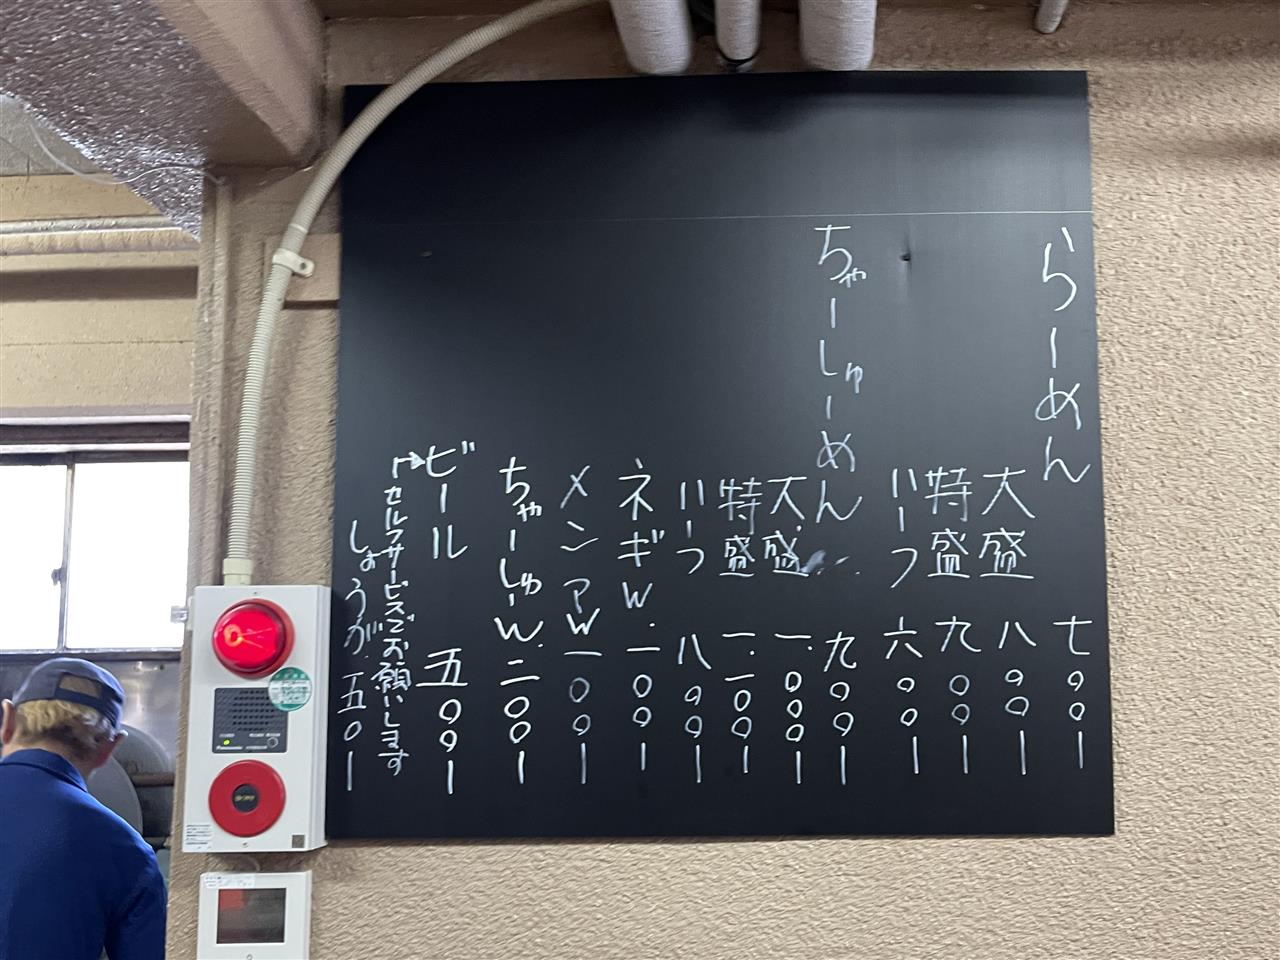 らーめん 七〇〇ー
大盛 八〇〇ー
特盛 九〇〇ー
ハーフ 六〇〇ー
ちゃーしゅーめん 九〇〇ー
大盛 一.〇〇〇ー
特盛 一.一〇〇ー
ハーフ 八〇〇ー
ネギW. 一〇〇ー
メンマW 一〇〇ー
ちゃーしゅーW. 二〇〇ー
ビール 五〇〇ー
→セルフサービスでお願いします
しょうが. 五〇ー
Panasonic